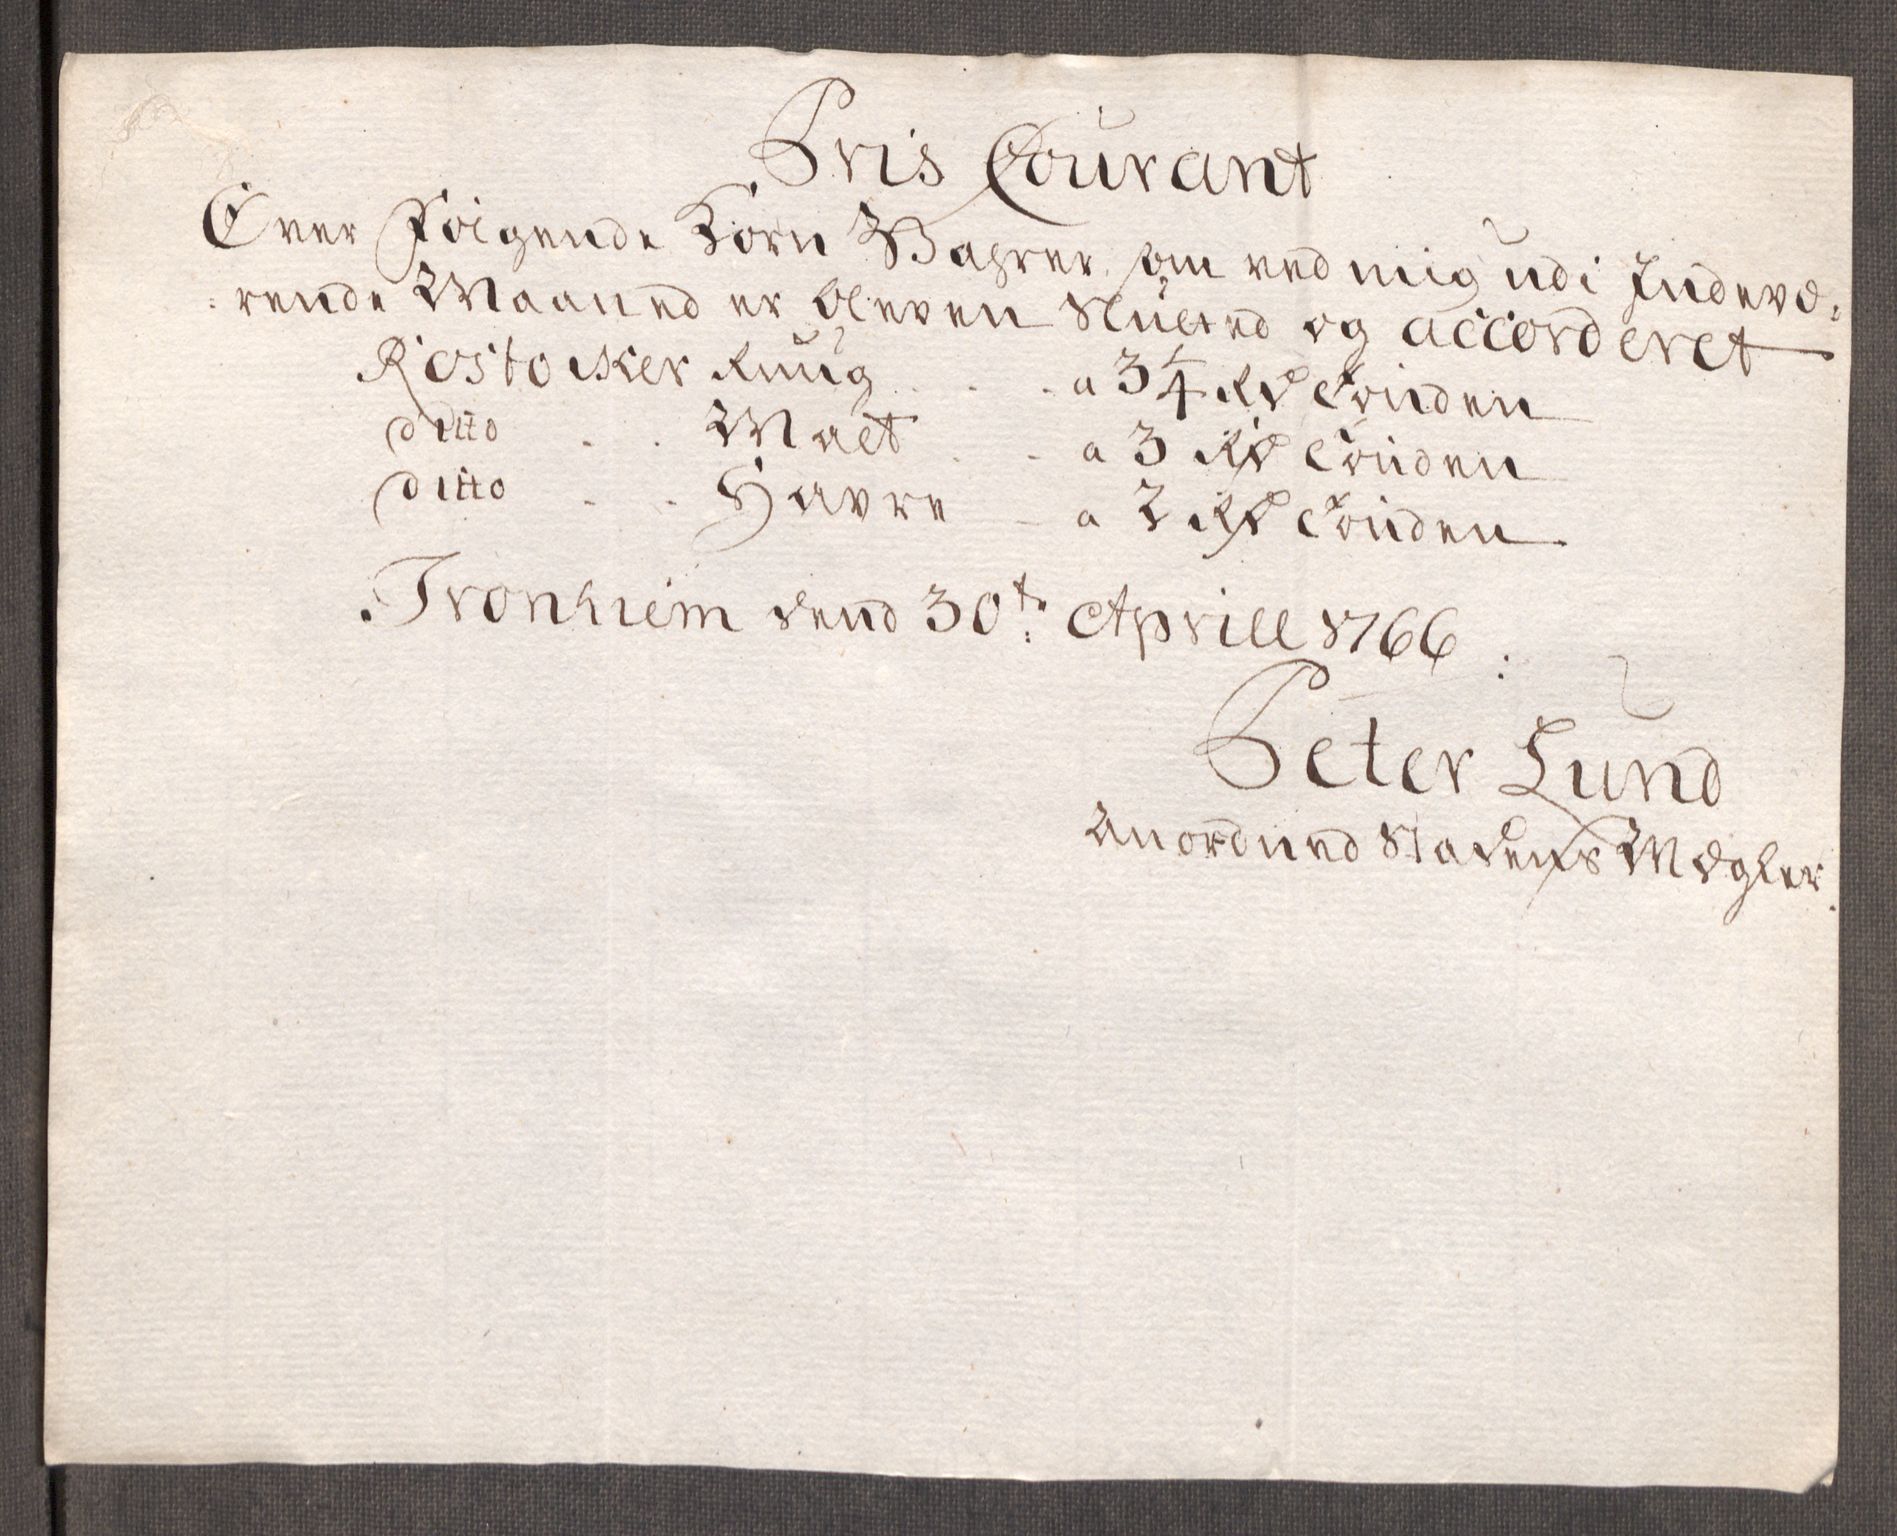 Pris Courant
Over Følgende Korn Wahrer som ved mig udi Indevæ-
rende Maaned er bleven Slutted og accorderet
Rostocker Rug . . . a 3 1/4 Rd Tønden
ditto . . Malt . . a 3 Rd Tønden
ditto . . Havre - a 2 Rd Tønden
Tronhiem dend 30te Aprill 1766
Peter Lund
Anordned Stadens Mægler.